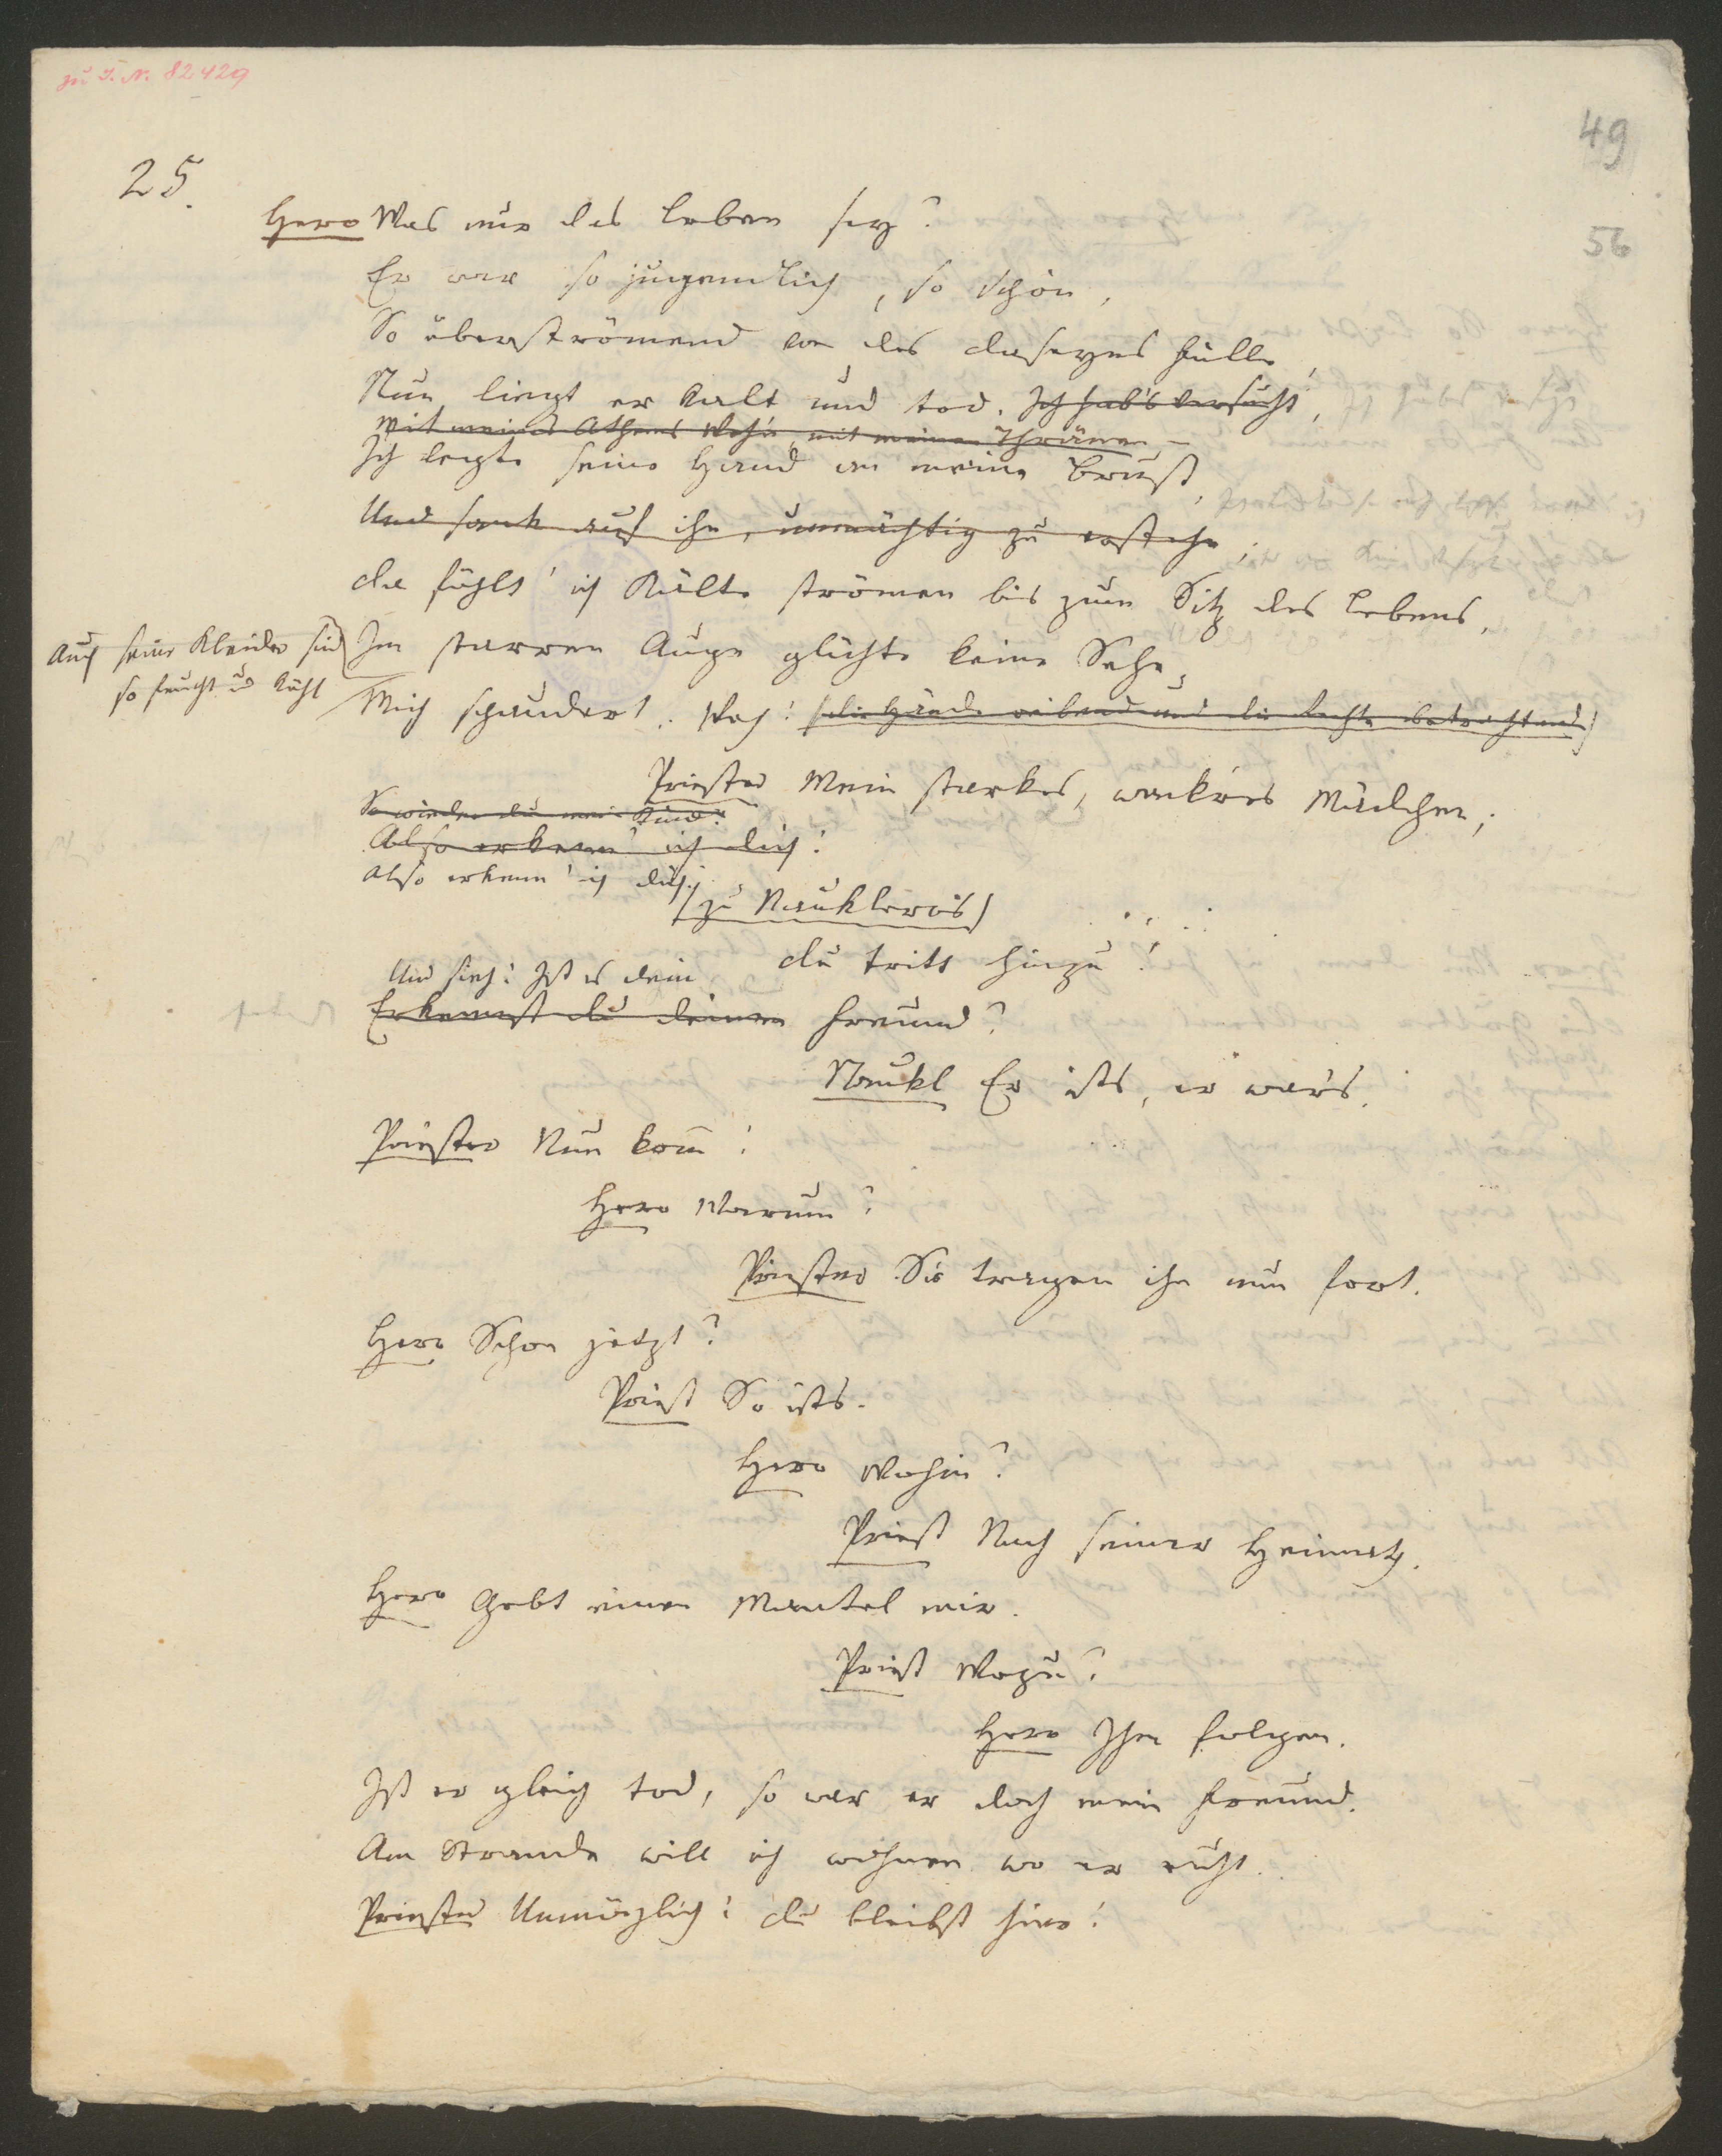 zu I. N. 82429
49
56
25.
Hero Was nur das Leben sey?
Er war so jugendlich, so schön,
So überströmend von des Daseyns Fülle,
Nun liegt er kalt und tod. Ich hab's versucht,
Mit meines Athems Weh'n, mit meinen Thränen –
Ich legte seine Hand an meine Brust,
Und sank auf ihn, unmächtig zu erstehn;
Da fühlt' ich Kälte strömen bis zum Sitz des Lebens,
Auch seine Kleider sind
so feucht u kühl
Im starren Auge glühte keine Sehe,
Mich schaudert. Weh! (die Hände reibend und die Rechte betrachtend)
Priester Mein starkes, wackres Mädchen,
So wieder du mein Kind!
Also erkenn' ich dich!
Also erkenn' ich dich.
(zu Naukleros)
Du tritt hinzu!
Und sieh! Ist es dein
Erkennst du deinen Freund?
Naukl Er ists, er war's.
Priester Nun kom̅!
Hero Warum?
Priester Sie tragen ihn nun fort.
Hero Schon jetzt?
Priest So ists.
Hero Wohin?
Priest Nach seiner Heimath.
Hero Gebt einen Mantel mir.
Priest Wozu?
Hero Ihm folgen.
Ist er gleich tod, so war er doch mein Freund.
Am Strande will ich wohnen wo er ruht.
Priester Unmöglich! Du bleibst hier!